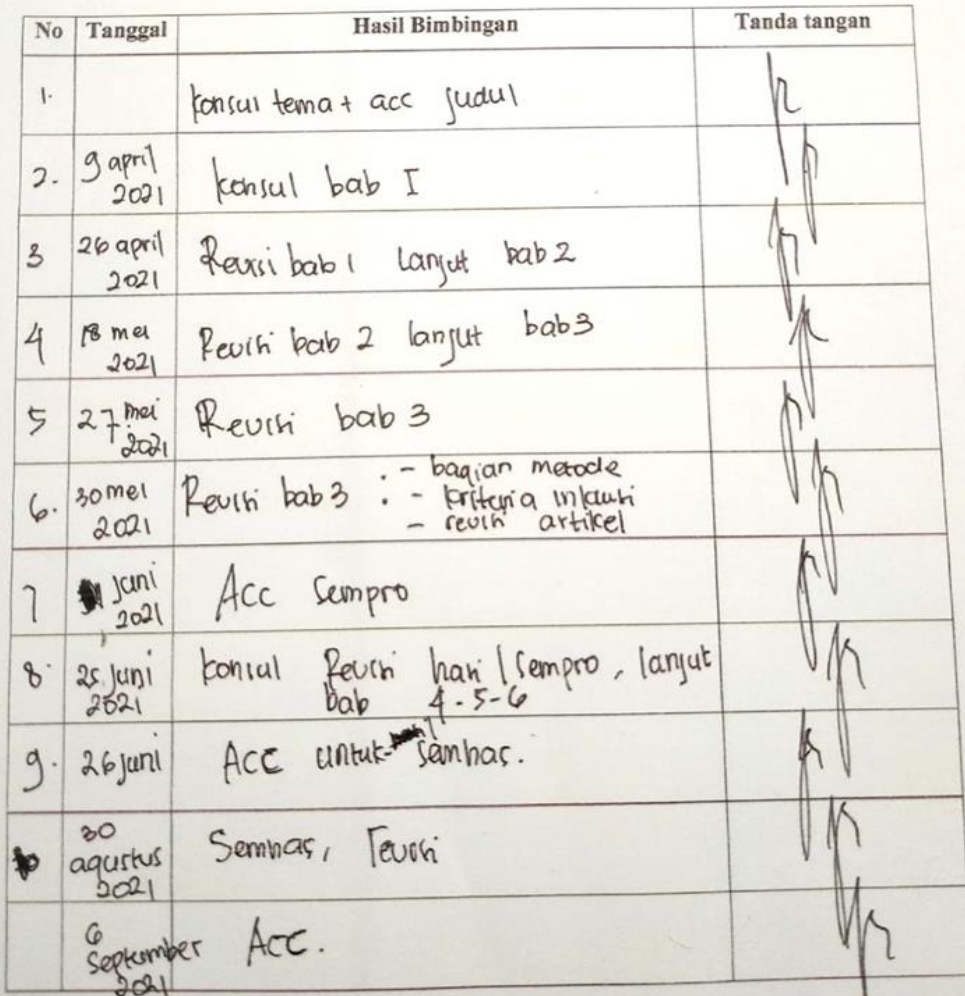 No Tanggal Hasil Bimbingan Tanda tangan
1. konsul tema + acc judul
2. 9 april 2021 konsul bab I
3 26 april 2021 Revisi bab 1 lanjut bab 2
4 18 mei 2021 Revisi bab 2 lanjut bab 3
5 27 mei 2021 Revisi bab 3
6. 30 mei 2021 Revisi bab 3 : - bagian metode
- kriteria inklusi
- revisi artikel
7 Juni 2021 Acc Sempro
8. 25 Juni 2021 konsul Revisi hasil Sempro, lanjut
bab 4-5-6
9. 26 juni ACC untuk semhas.
10 30 agustus 2021 Semhas, revisi
6 September 2021 Acc.